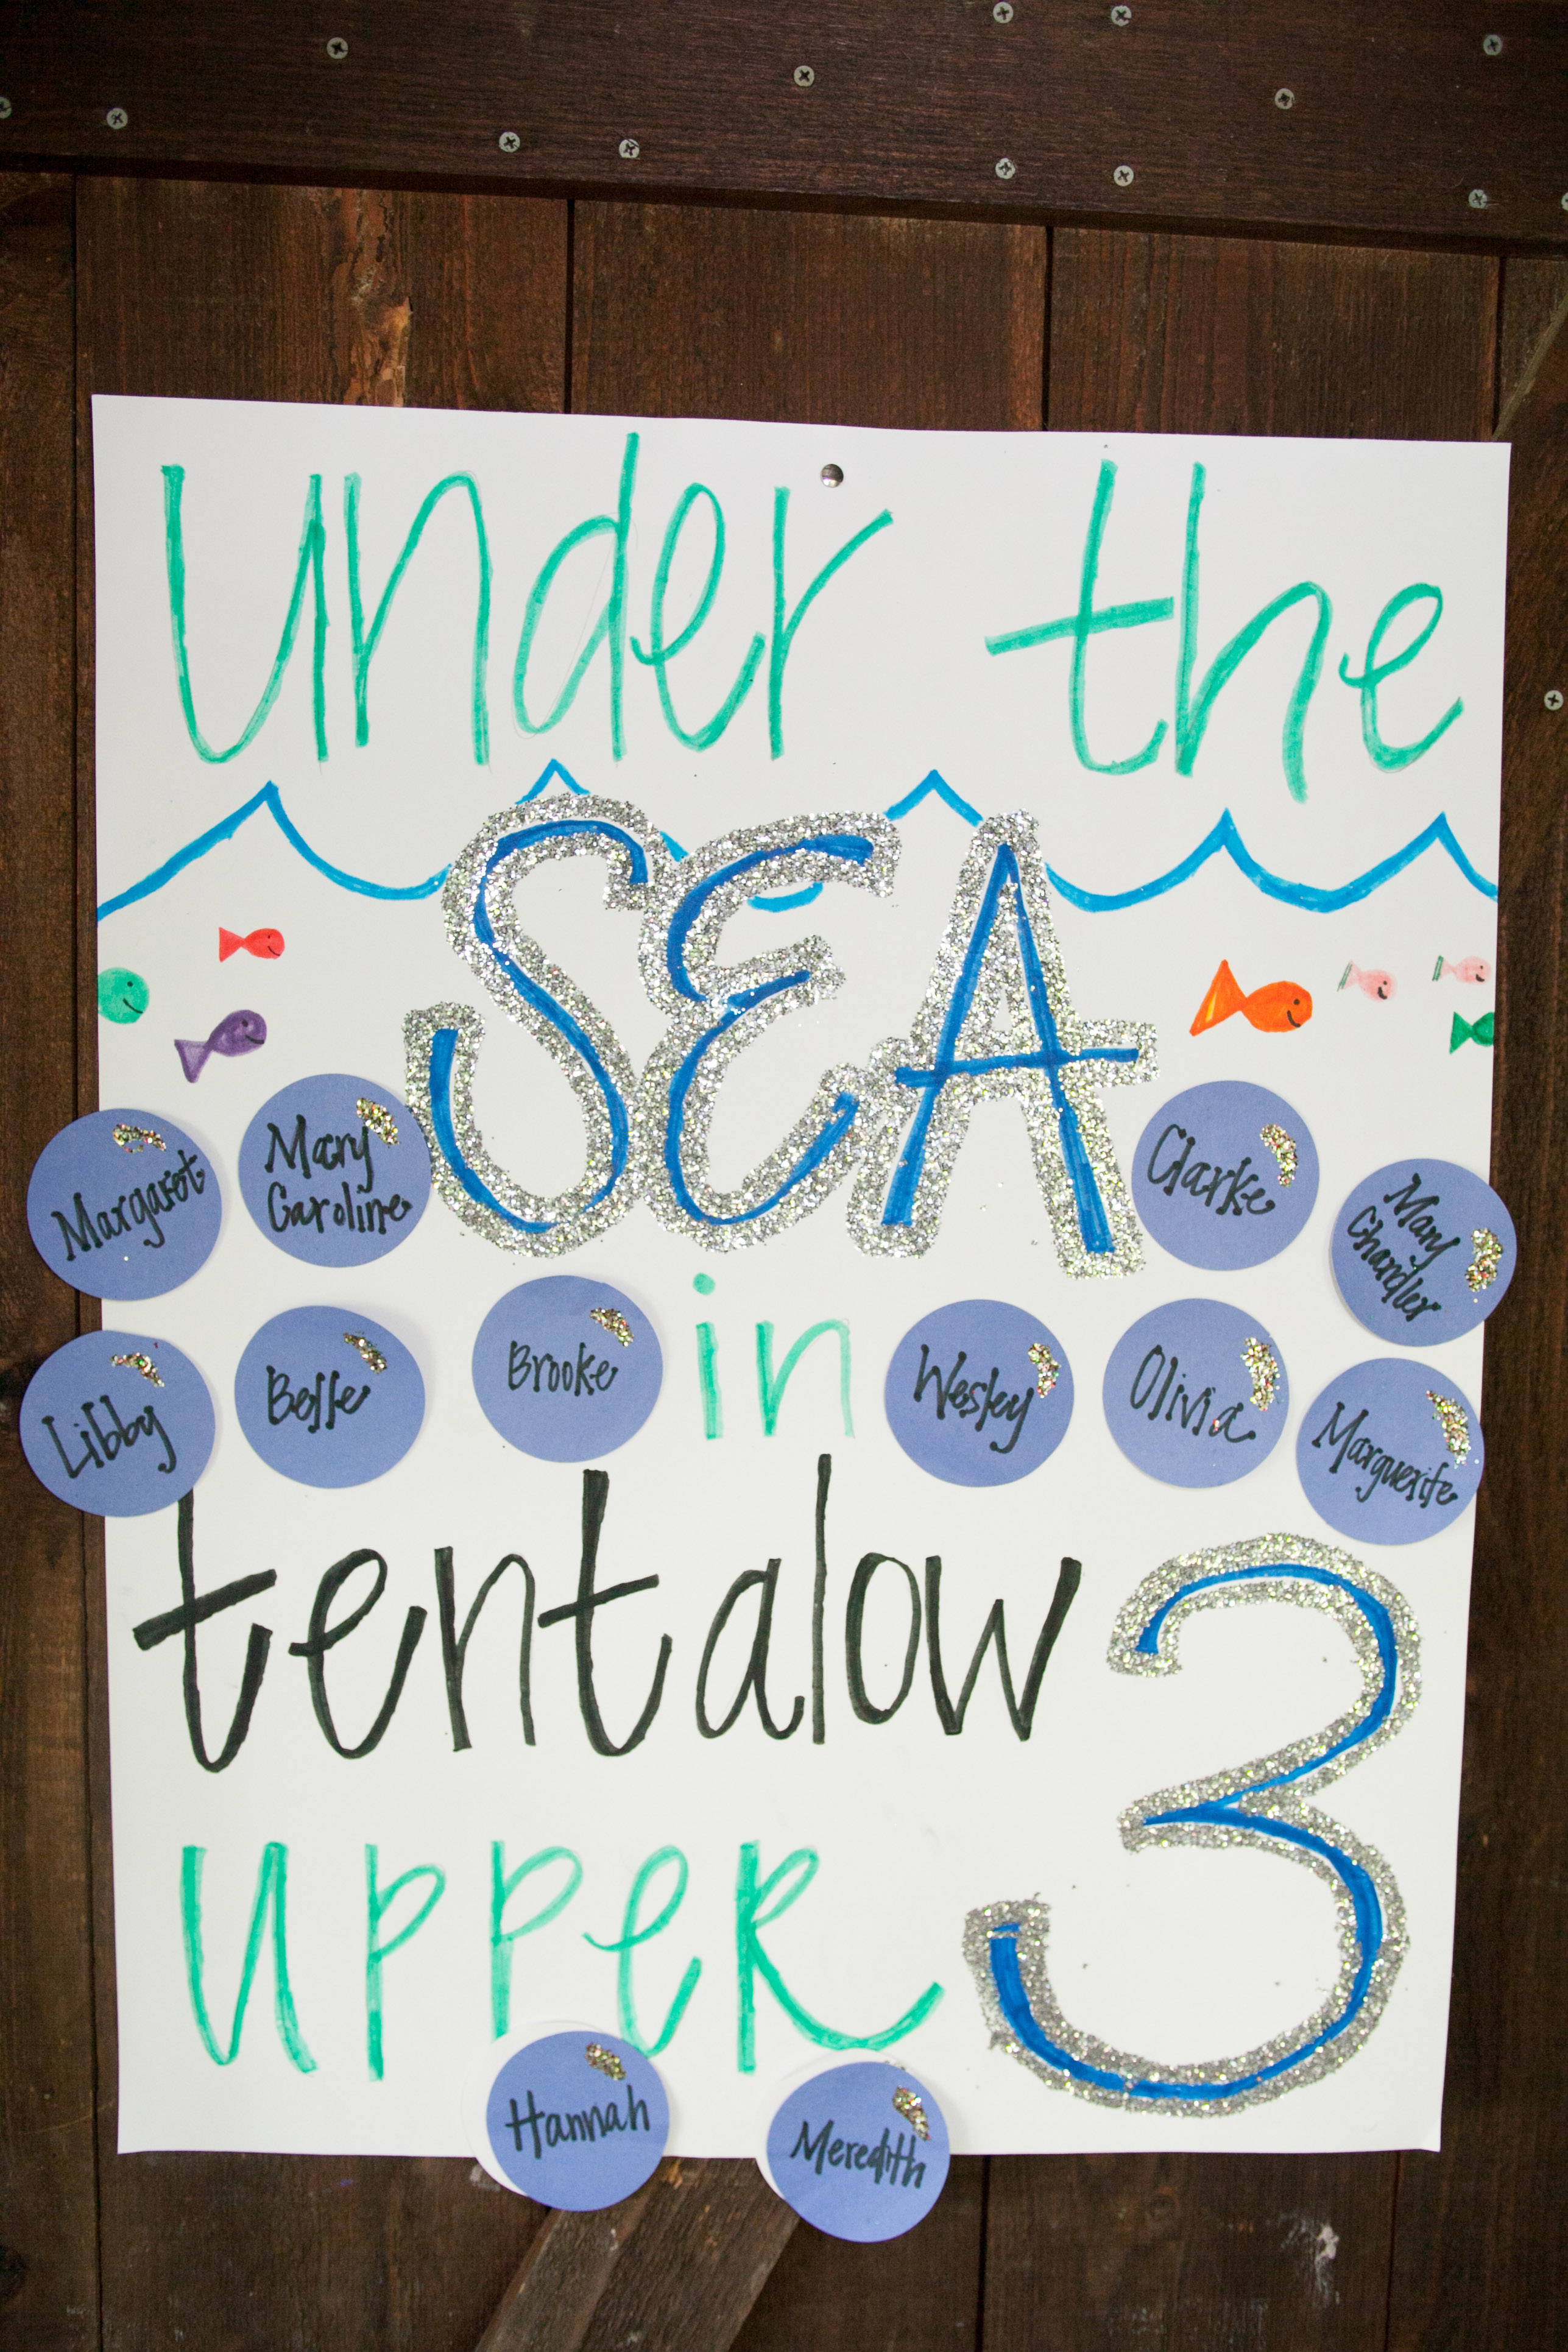 under the
SEA
Margaret
Mary
Caroline
Clarke
Mary
Chandler
in
Libby
Belle
Brooke
Wesley
Olivia
Marguerite
tentalow 3
UPPeR
Hannah
Meredith